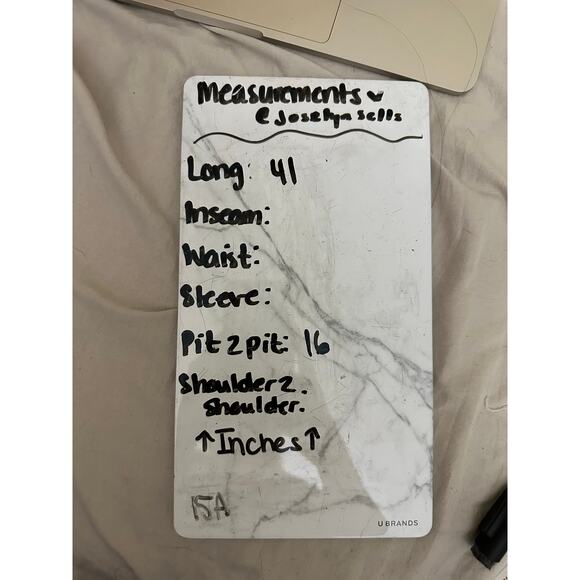 Measurements
@Joselynsells
Long: 41
Inseam:
Waist:
Sleeve:
Pit 2 pit: 16
Shoulder 2.
Shoulder.
↑Inches↑
15A
U BRANDS